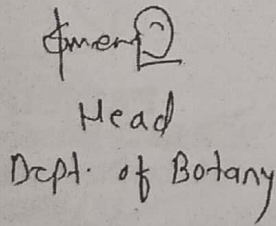 Head
Dept. of Botany